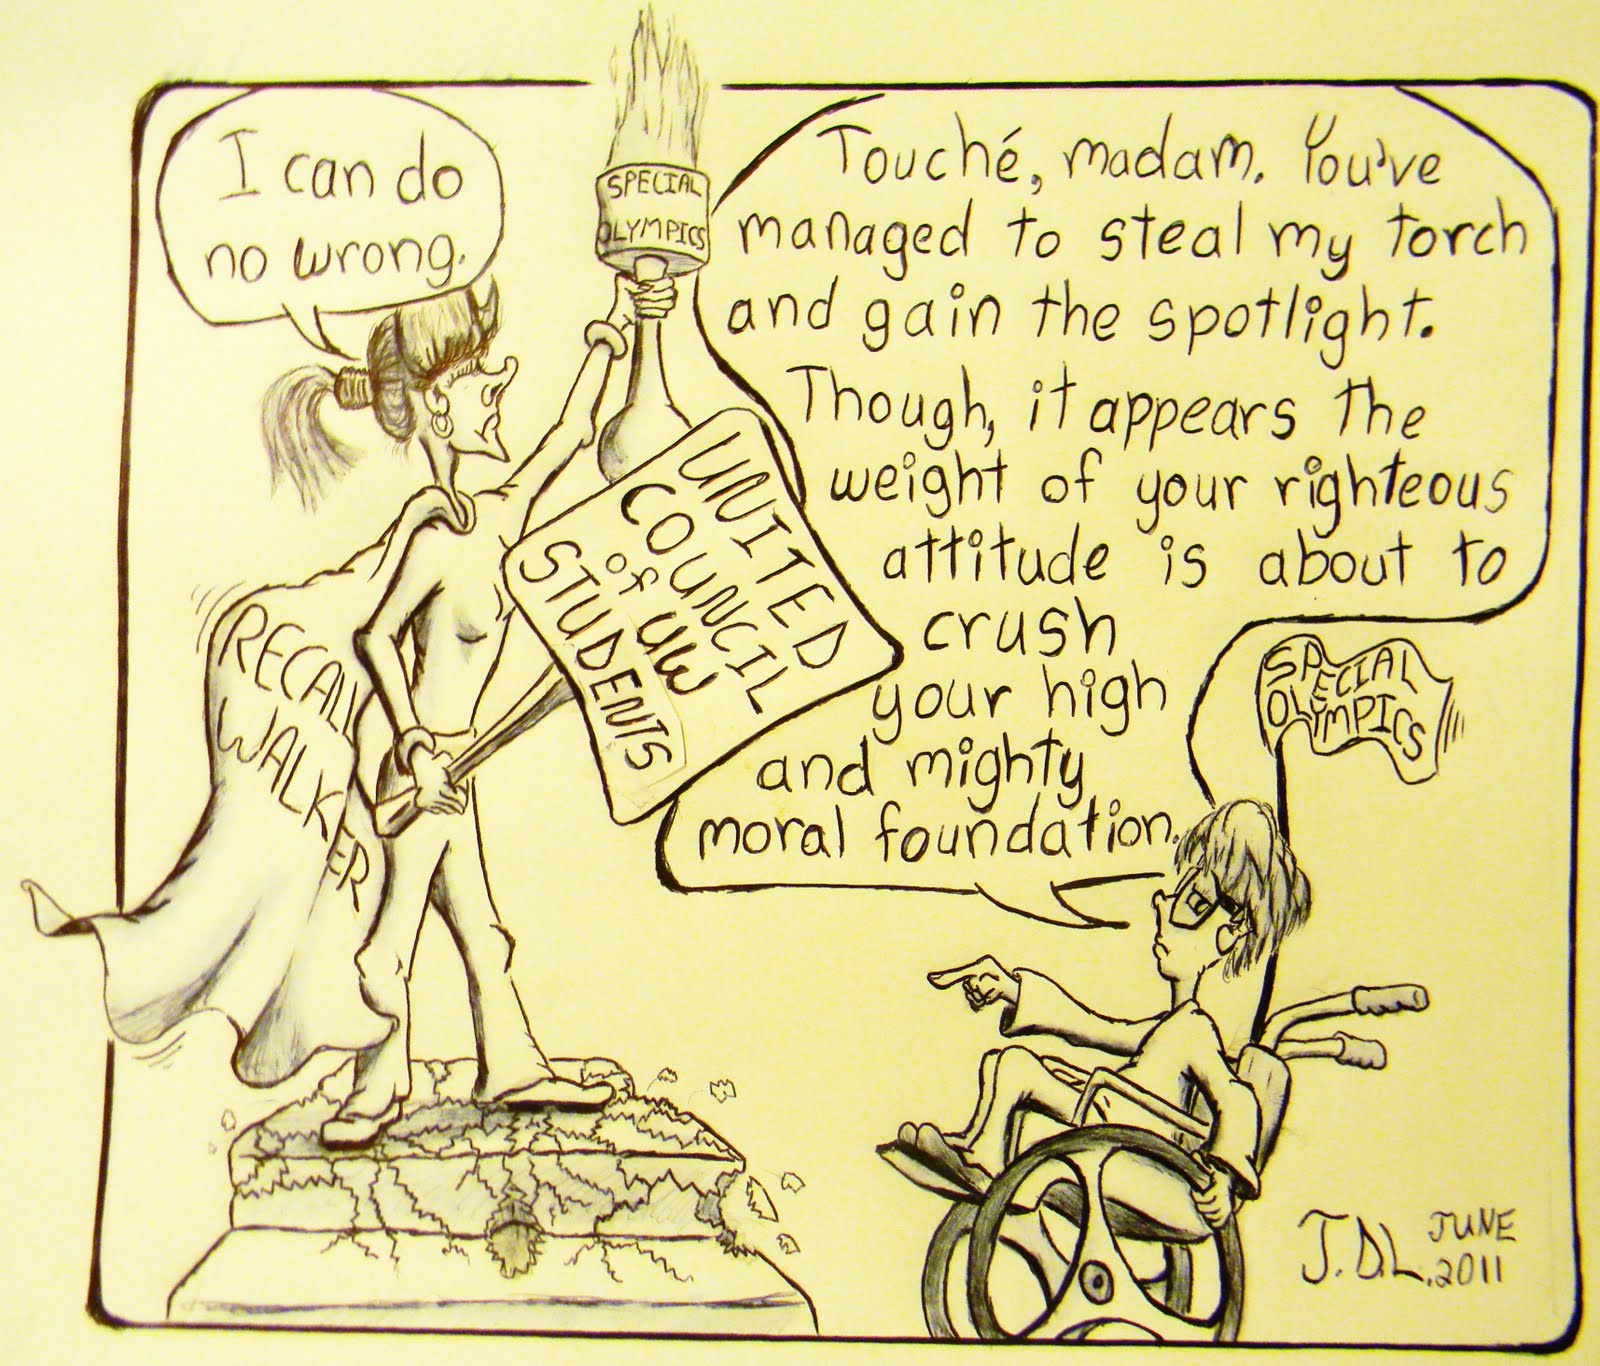 I can do
no wrong.
SPECIAL
OLYMPICS
Touché, madam. You've
managed to steal my torch
and gain the spotlight.
Though, it appears the
weight of your righteous
attitude is about to
crush
your high
and mighty
moral foundation.
UNITED
COUNCIL
of UW
STUDENTS
RECALL
WALKER
SPECIAL
OLYMPICS
J.D.L. JUNE
2011